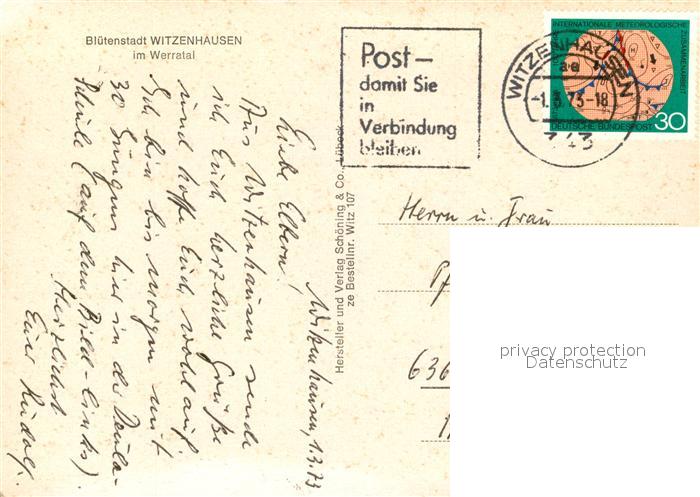 Blütenstadt WITZENHAUSEN
im Werratal
Post –
damit Sie
in
Verbindung
bleiben
WITZENHAUSEN
-1.3.73-18
343
INTERNATIONALE METEOROLOGISCHE
ZUSAMMENARBEIT
DEUTSCHE BUNDESPOST 30
Witzenhausen, 1.3.73
Liebe Eltern!
Aus Witzenhausen sende
ich Euch herzliche Grüße
und hoffe Euch wohlauf.
Ich bin bis morgen mit
30 Jungens hier in der Deula-
Schule (auf dem Bild links).
Herzlichst
Euer Rudolf.
Hersteller und Verlag Schöning & Co., Lübeck
ze Bestellnr. Witz 107
Herrn u. Frau
636
privacy protection
Datenschutz